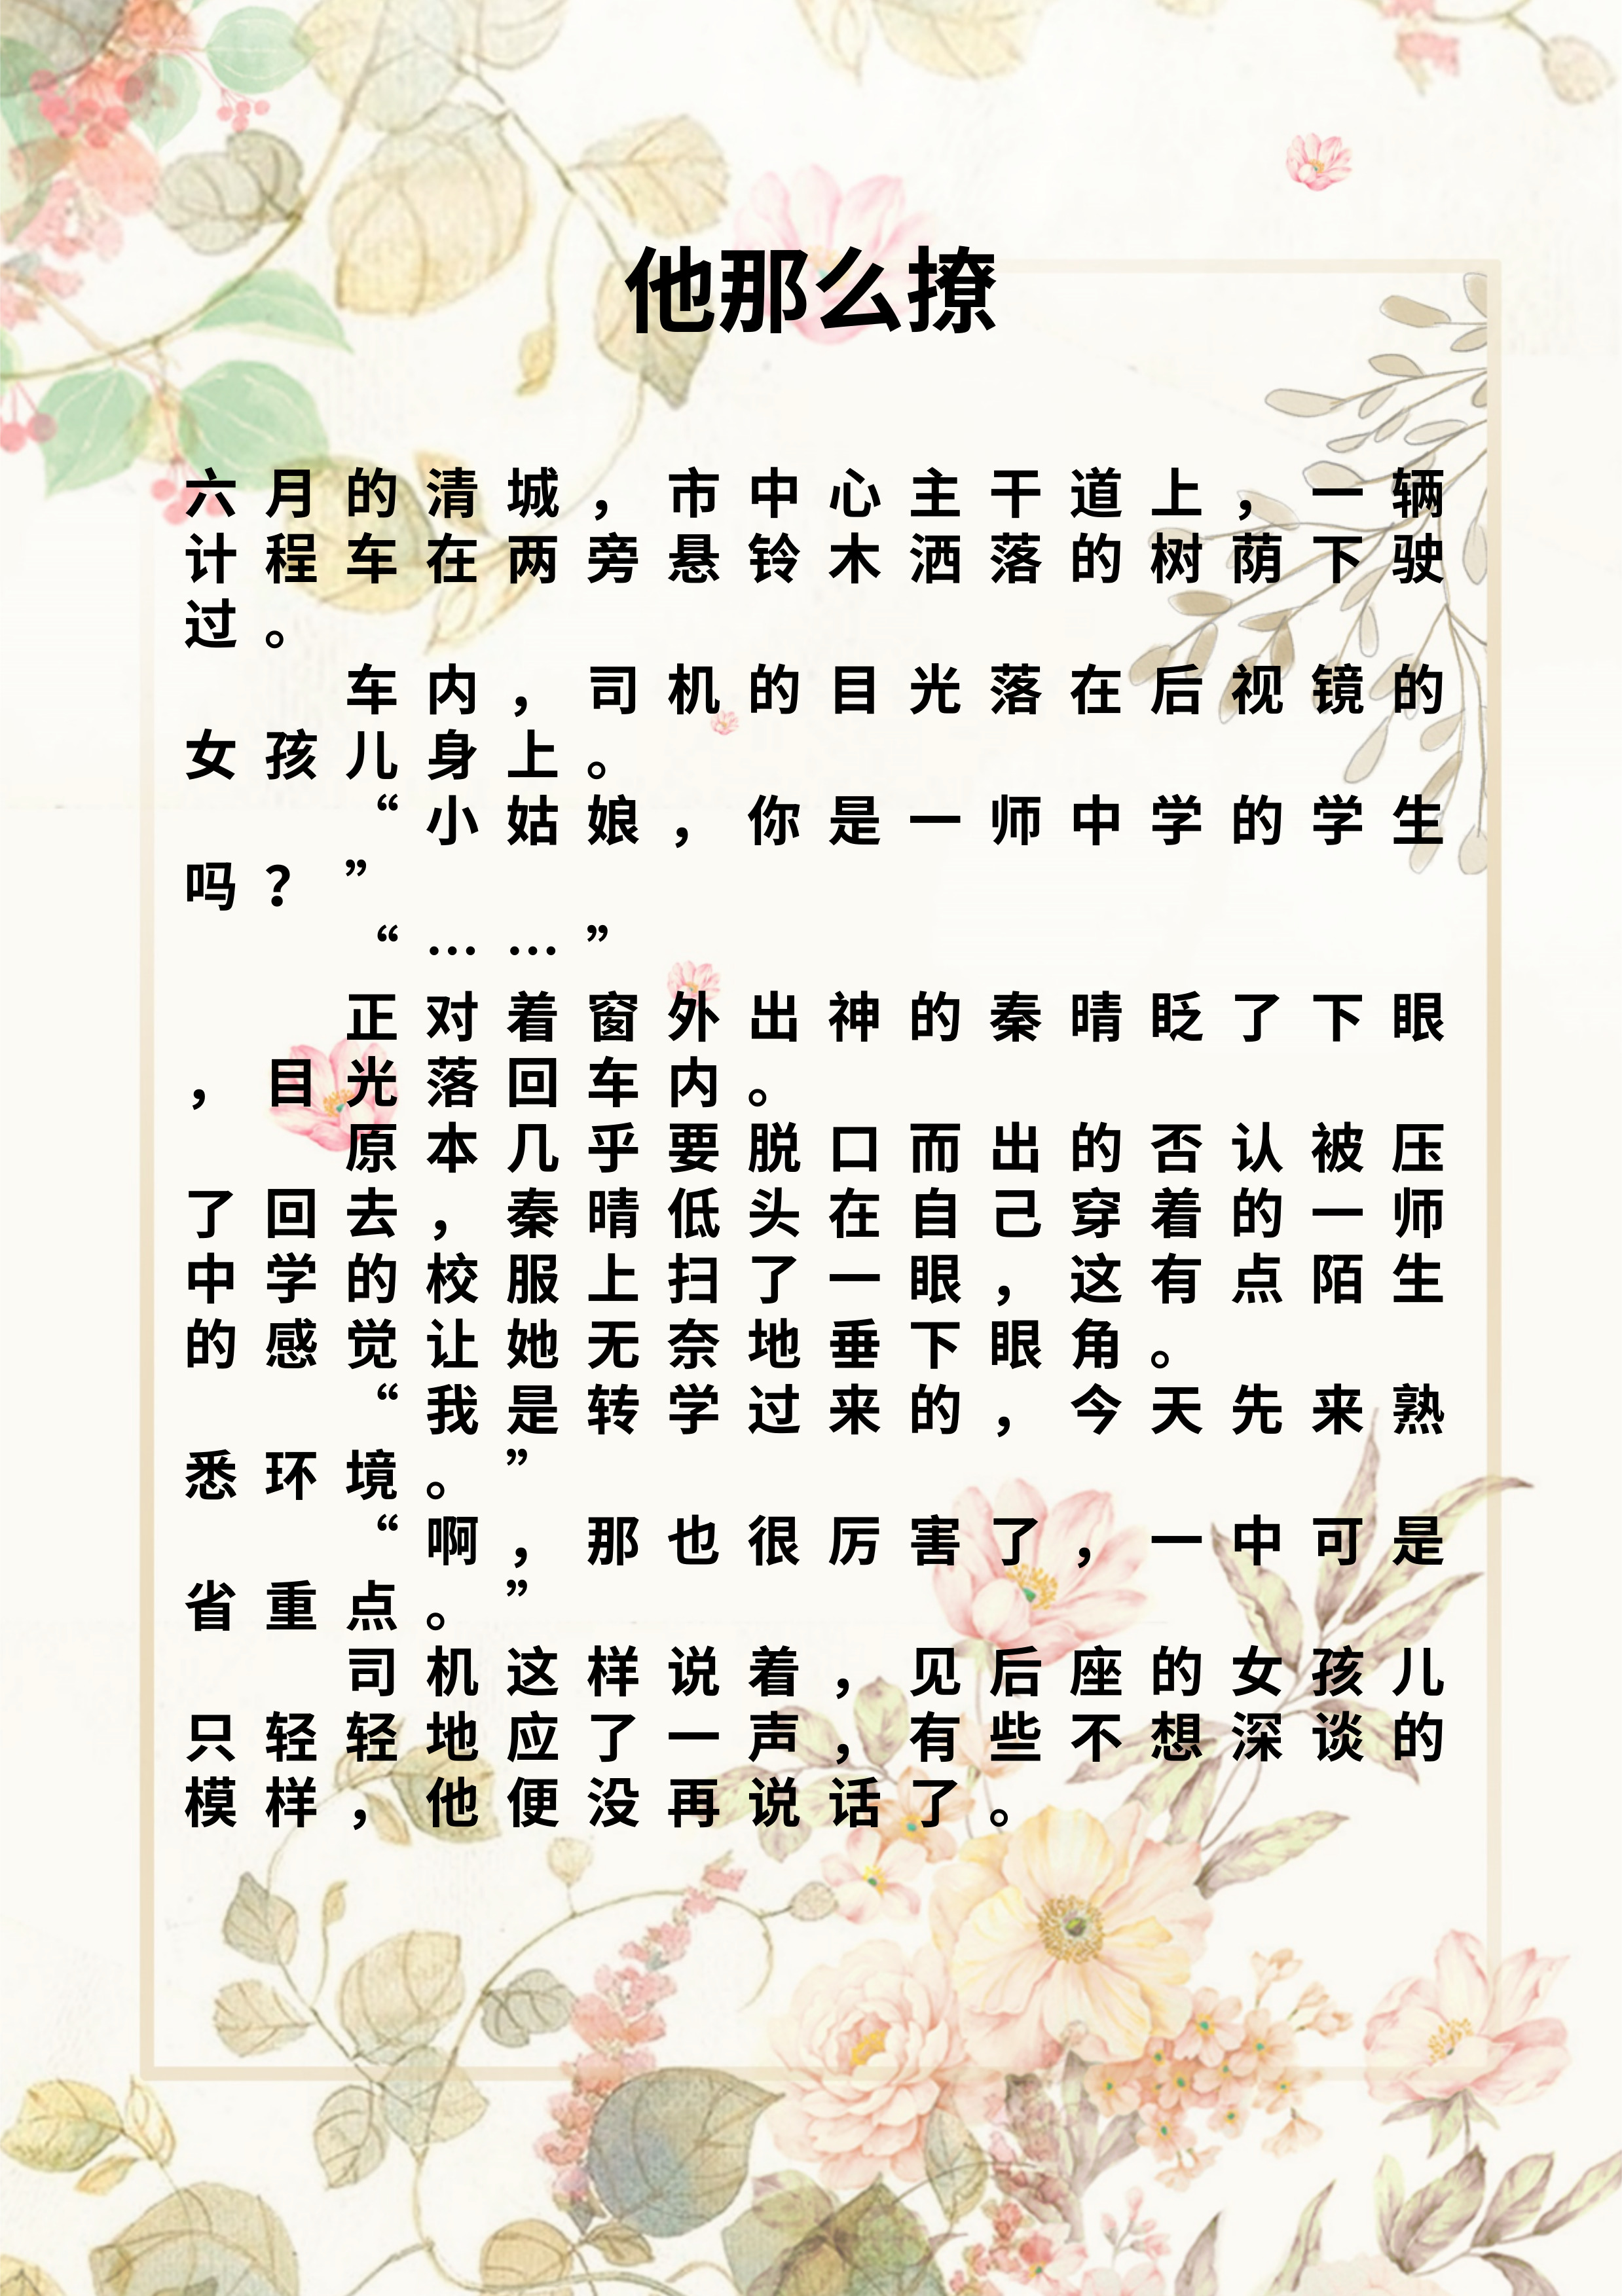 他那么撩
六月的清城，市中心主干道上，一辆
计程车在两旁悬铃木洒落的树荫下驶
过。
车内，司机的目光落在后视镜的
女孩儿身上。
“小姑娘，你是一师中学的学生
吗？”
“……”
正对着窗外出神的秦晴眨了下眼
，目光落回车内。
原本几乎要脱口而出的否认被压
了回去，秦晴低头在自己穿着的一师
中学的校服上扫了一眼，这有点陌生
的感觉让她无奈地垂下眼角。
“我是转学过来的，今天先来熟
悉环境。”
“啊，那也很厉害了，一中可是
省重点。”
司机这样说着，见后座的女孩儿
只轻轻地应了一声，有些不想深谈的
模样，他便没再说话了。